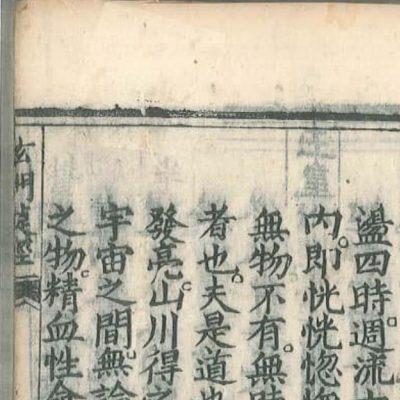 盪四時週流
內。即恍恍惚惚
無物不有。無時
者也。夫是道也
發亮。山川得之
宇宙之間。無論
之物。精血性命